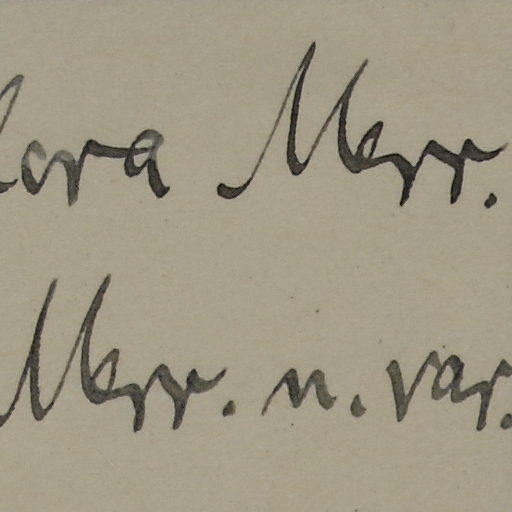 lora Merr.
Merr. n. var.